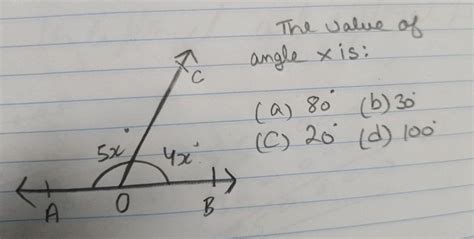 The value of
angle x is:
(a) 80° (b) 30°
(C) 20° (d) 100°
C
5x° 4x°
A O B